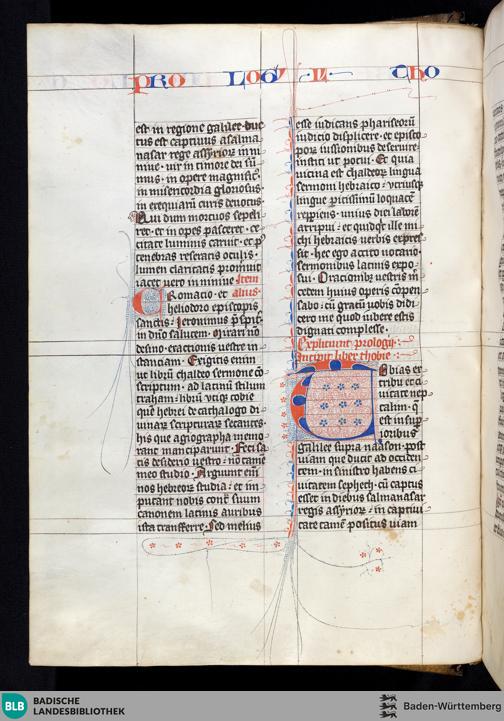 PRO LOG' I THO
est in regione galilee duc
tus est captiuus a salma
nasar rege assyrior in ni
niue. uir in timore dei su
mus. in opere magnific'
in misericordia gloriosus.
in exequiaru curis deuotus.
Qui dum mortuos sepeli
ret. et inopes pasceret. ce
citate luminis caruit. et p'
tenebras reseratis oculis.
lumen claritatis promuit
iacet uero in niniue. Item
Cromacio. et alius.
heliodoro episcopis
sanctis. Jeronimus p'spit'
in dno salutem. Mirari no
desino. exactionis uestre in
stanciam. Exigitis enim
ut libru chaldeo sermone co
scriptum. ad latinu stilum
traham. libru utiq' tobie
que hebrei de cathalogo di
uinaru scripturaru secantes.
his que agiographa memo
rant manciparunt. Feci sa
tis desiderio uestro. no tame
meo studio. Arguunt eni
nos hebreoru studia. et in
putant nobis cont' suum
canonem latinis auribus
ista transferre. Sed melius
esse iudicans phariseoru
iudicio displicere. et episco
por iussionibus deseruire.
institi ut potui. Et quia
uicina est chaldeor lingua
sermoni hebraico. utriusq'
lingue p'itissimu loquace
repperiens. unius diei labore
arripui. et quidqd ille mi
chi hebraicis uerbis expres
sit. hec ego accito notario
sermonibus latinis expo
sui. Orationibus uestris m'
cedem huius operis copen
sabo. cu gratu uobis didi
cero me quod iubere estis
dignati complesse.
Expliciunt prologi.
Incipit liber thobie.
Tobias ex
tribu et ci
uitate nep
talim. q'
est in sup'
ioribus
galilee supra naason. post
uiam que ducit ad occiden
tem. in sinistro habens ci
uitatem sepheth. cu captus
esset in diebus salmanasar
regis assyrior. in captiui
tate tame positus uiam
BLB BADISCHE LANDESBIBLIOTHEK
Baden-Württemberg